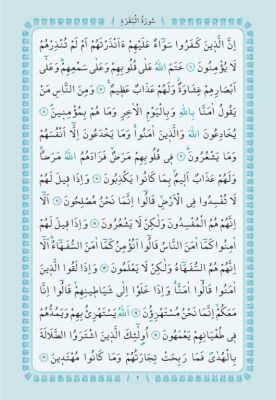 سُورَةُ الْبَقَرَةِ
اِنَّ الَّذِينَ كَفَرُوا سَوَٓاءٌ عَلَيْهِمْ ءَاَنْذَرْتَهُمْ اَمْ لَمْ تُنْذِرْهُمْ
لَا يُؤْمِنُونَ ﴿٦﴾ خَتَمَ اللهُ عَلٰى قُلُوبِهِمْ وَعَلٰى سَمْعِهِمْ وَعَلٰٓى
اَبْصَارِهِمْ غِشَاوَةٌ وَلَهُمْ عَذَابٌ عَظِيمٌ ﴿٧﴾ وَمِنَ النَّاسِ مَنْ
يَقُولُ اٰمَنَّا بِاللهِ وَبِالْيَوْمِ الْاٰخِرِ وَمَا هُمْ بِمُؤْمِنِينَ ﴿٨﴾
يُخَادِعُونَ اللهَ وَالَّذِينَ اٰمَنُوا وَمَا يَخْدَعُونَ اِلَّٓا اَنْفُسَهُمْ
وَمَا يَشْعُرُونَ ﴿٩﴾ فِى قُلُوبِهِمْ مَرَضٌ فَزَادَهُمُ اللهُ مَرَضًا
وَلَهُمْ عَذَابٌ اَلِيمٌ بِمَا كَانُوا يَكْذِبُونَ ﴿١٠﴾ وَاِذَا قِيلَ لَهُمْ
لَا تُفْسِدُوا فِى الْاَرْضِ قَالُٓوا اِنَّمَا نَحْنُ مُصْلِحُونَ ﴿١١﴾ اَلَٓا
اِنَّهُمْ هُمُ الْمُفْسِدُونَ وَلٰكِنْ لَا يَشْعُرُونَ ﴿١٢﴾ وَاِذَا قِيلَ لَهُمْ
اٰمِنُوا كَمَٓا اٰمَنَ النَّاسُ قَالُٓوا اَنُؤْمِنُ كَمَٓا اٰمَنَ السُّفَهَٓاءُ اَلَٓا
اِنَّهُمْ هُمُ السُّفَهَٓاءُ وَلٰكِنْ لَا يَعْلَمُونَ ﴿١٣﴾ وَاِذَا لَقُوا الَّذِينَ
اٰمَنُوا قَالُٓوا اٰمَنَّا وَاِذَا خَلَوْا اِلٰى شَيَاطِينِهِمْ قَالُٓوا اِنَّا
مَعَكُمْ اِنَّمَا نَحْنُ مُسْتَهْزِؤُ۫نَ ﴿١٤﴾ اَللهُ يَسْتَهْزِئُ بِهِمْ وَيَمُدُّهُمْ
فِى طُغْيَانِهِمْ يَعْمَهُونَ ﴿١٥﴾ اُو۬لٰٓئِكَ الَّذِينَ اشْتَرَوُا الضَّلَالَةَ
بِالْهُدٰى فَمَا رَبِحَتْ تِجَارَتُهُمْ وَمَا كَانُوا مُهْتَدِينَ ﴿١٦﴾
٢